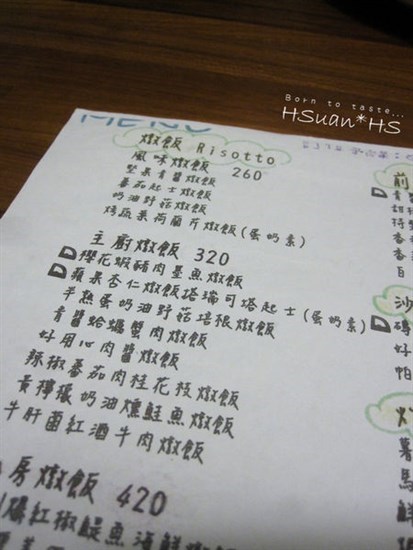 Born to taste...
HSuan*HS
MENU
燉飯 Risotto
風味燉飯 260
堅果青醬燉飯
蕃茄起士燉飯
奶油野菇燉飯
烤蔬菜荷蘭片燉飯(蛋奶素)
主廚燉飯 320
櫻花蝦豬肉墨魚燉飯
蘋果杏仁燉飯塔瑞可塔起士(蛋奶素)
半熟蛋奶油野菇培根燉飯
青醬蛤蠣蟹肉燉飯
好用心肉醬燉飯
辣椒蕃茄肉桂花枝燉飯
黃檸檬奶油燻鮭魚燉飯
牛肝菌紅酒牛肉燉飯
房燉飯 420
爆紅椒鯷魚海鮮燉飯
前
青
甜
番
沙
磚
好
帕
薯
馬
鮮